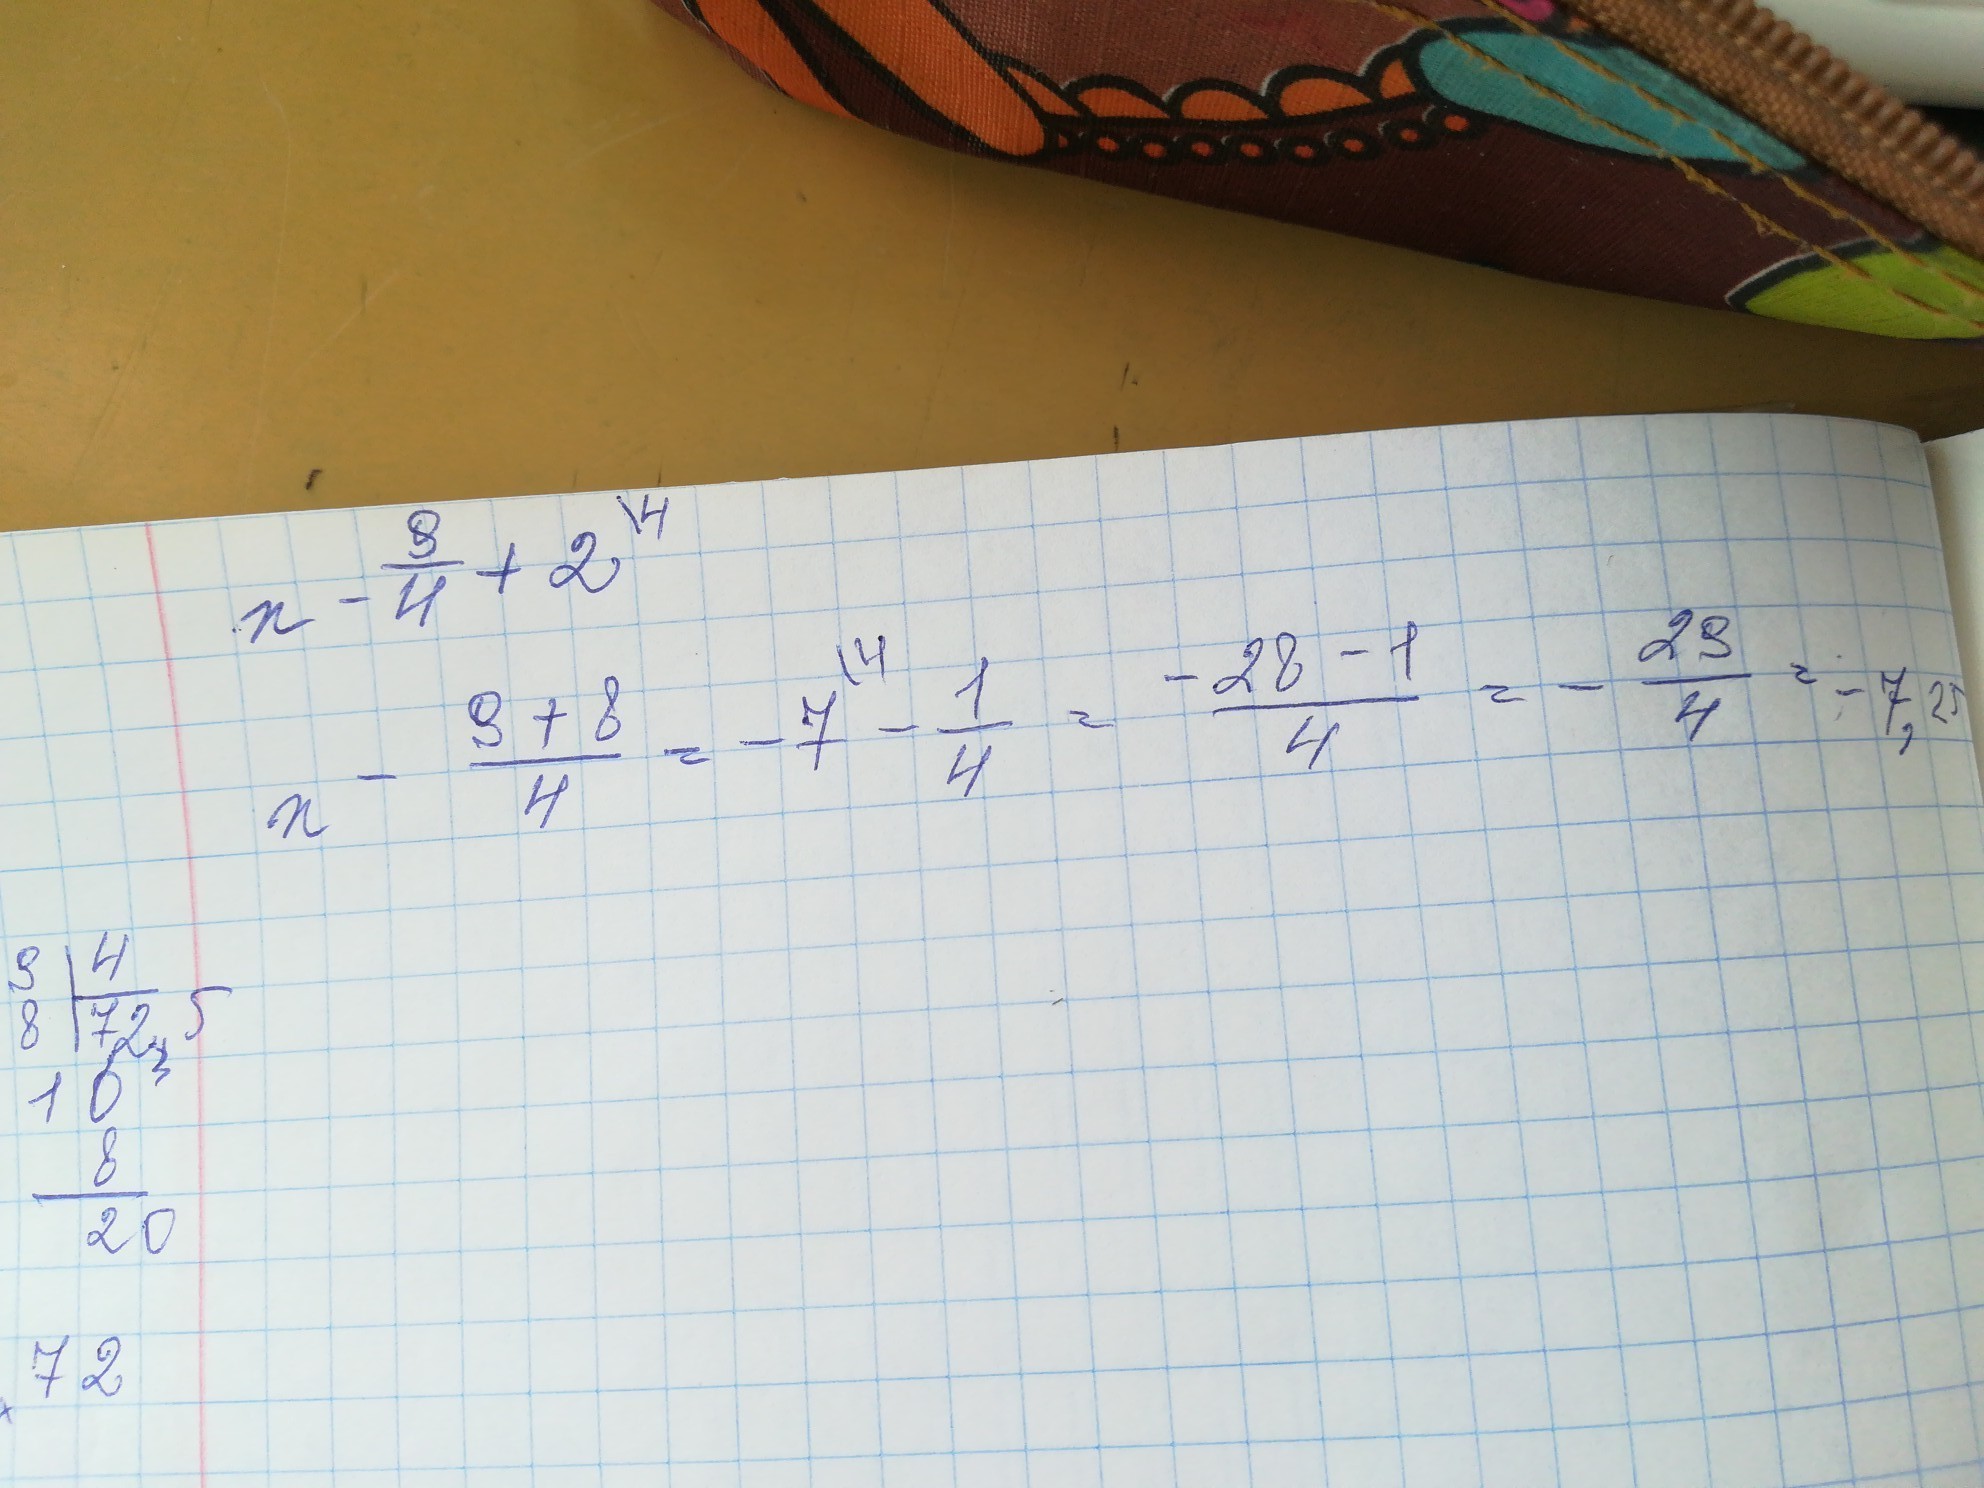 x - 9/4 + 2\4
x - (9 + 8)/4 = -7\4 - 1/4 = (-28 - 1)/4 = - 29/4 = - 7,25
9 | 4
8 | 72,5
10
8
20
72